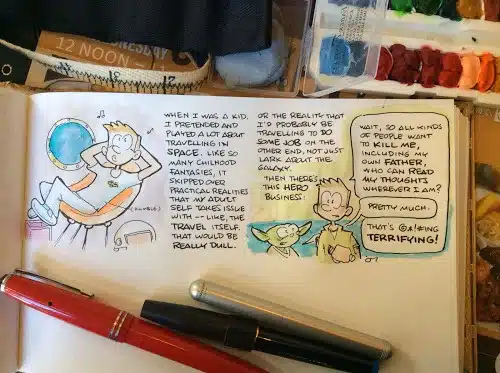 WEDNESDAY
12 NOON
17
WHEN I WAS A KID,
I PRETENDED AND
PLAYED A LOT ABOUT
TRAVELLING IN
SPACE. LIKE SO
MANY CHILDHOOD
FANTASIES, IT
SKIPPED OVER
PRACTICAL REALITIES
THAT MY ADULT
SELF TAKES ISSUE
WITH -- LIKE, THE
TRAVEL ITSELF.
THAT WOULD BE
REALLY DULL.
OR THE REALITY THAT
I'D PROBABLY BE
TRAVELLING TO DO
SOME JOB ON THE
OTHER END, NOT JUST
LARK ABOUT THE
GALAXY.
THEN THERE'S
THIS HERO
BUSINESS:
WAIT, SO ALL KINDS
OF PEOPLE WANT
TO KILL ME,
INCLUDING MY
OWN FATHER,
WHO CAN READ
MY THOUGHTS
WHEREVER I AM?
PRETTY MUCH.
THAT'S @*!#ING
TERRIFYING!